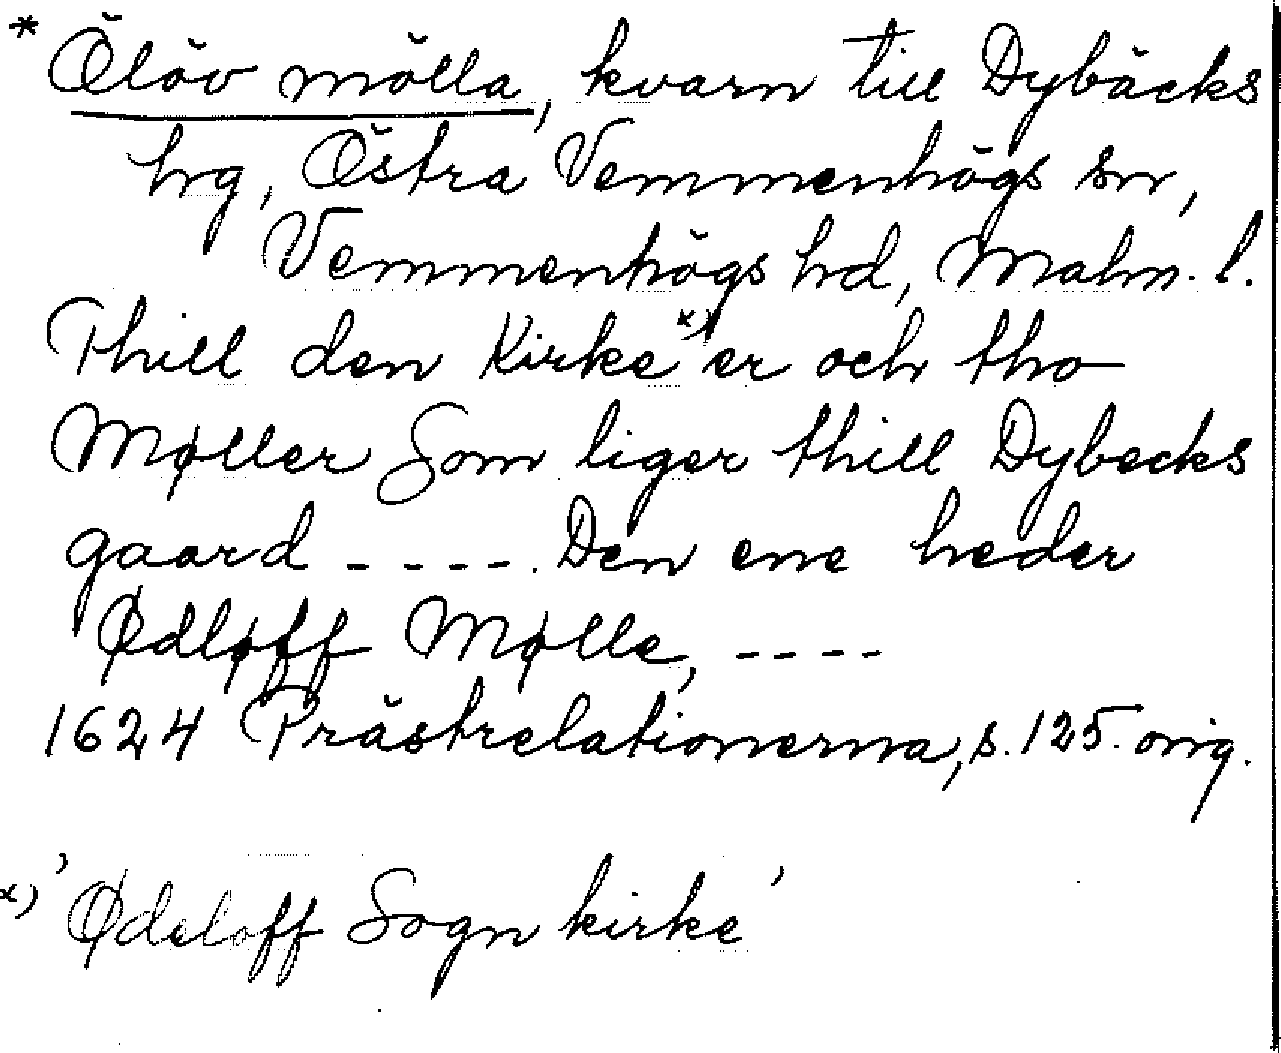 * Ölöv mölla, kvarn till Dybäcks
hrg, Östra Vemmenhögs sn,
Vemmenhögs hd, Malm. l.
Thill den Kirke x) er och tho
Møller Som liger thill Dybecks
gaard - - - -. Den ene heder
Ødløff Mølle, - - - -
1624 Prästrelationerna, s. 125. orig.
x) 'Ødeloff Sogn kirke'